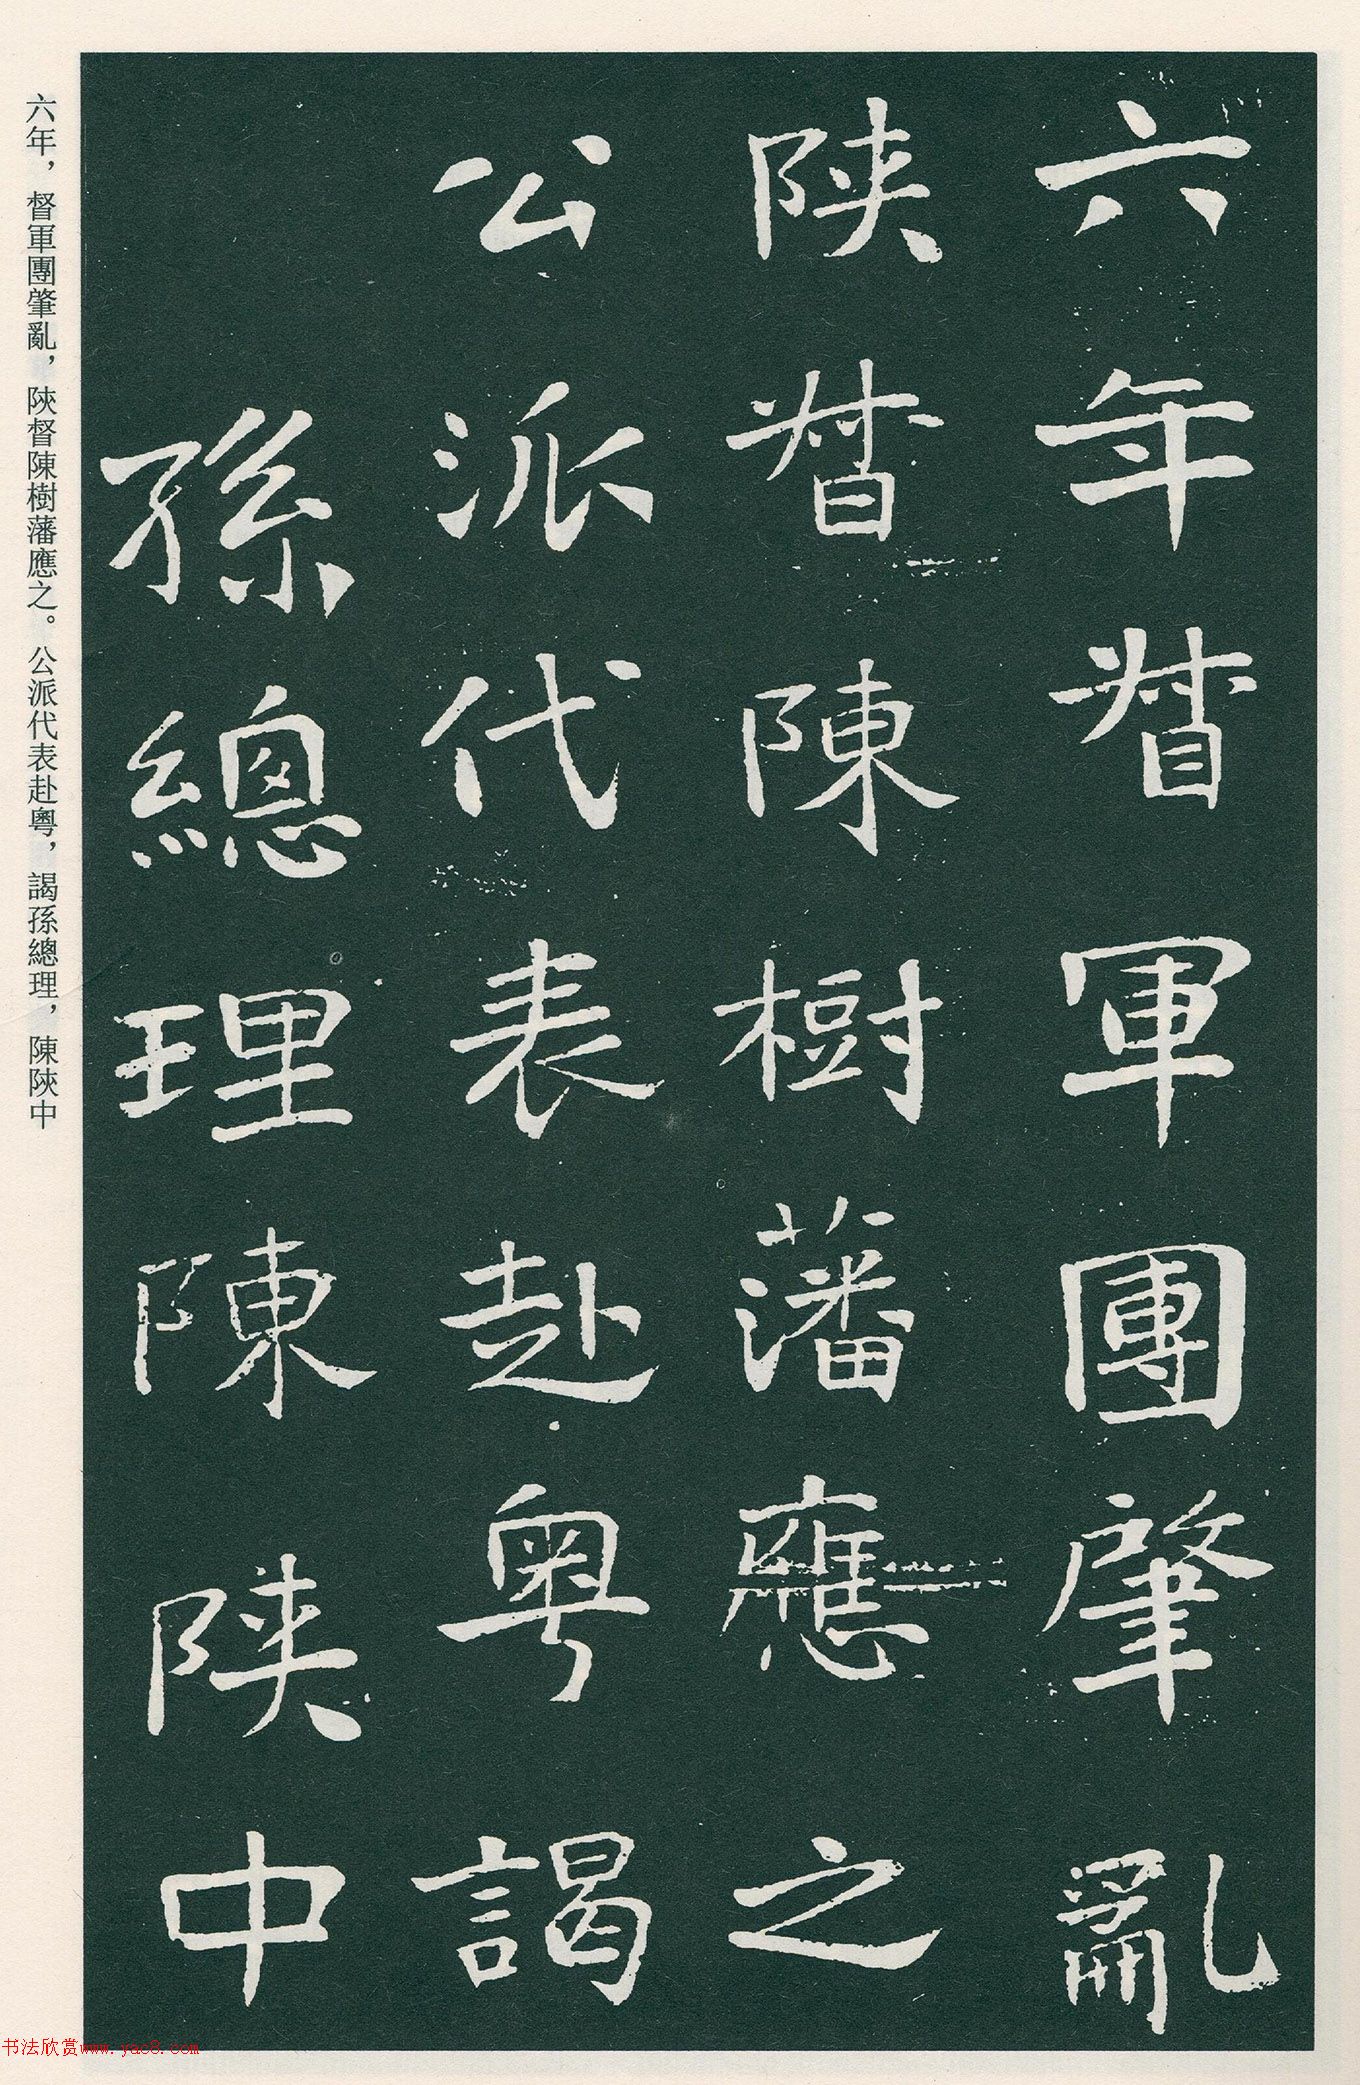 六年督軍團肇亂
陝督陳樹藩應之
公派代表赴粵謁
孫總理陳陝中
六年，督軍團肇亂，陝督陳樹藩應之。公派代表赴粵，謁孫總理，陳陝中
书法欣赏www.yac8.com